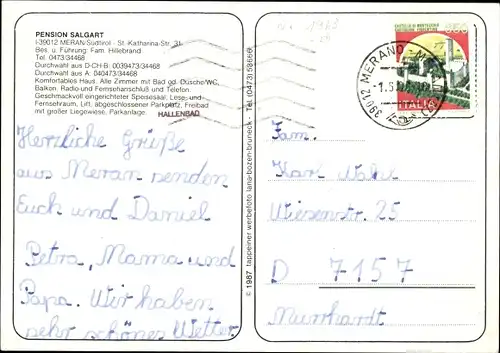 PENSION SALGART
I-39012 MERAN-Südtirol - St. Katharina-Str. 31
Bes. u. Führung: Fam. Hillebrand
Tel. 0473/34468
Durchwahl aus D-CH-B: 0039473/34468
Durchwahl aus A: 040473/34468
Komfortables Haus. Alle Zimmer mit Bad od. Dusche/WC,
Balkon, Radio- und Fernsehanschluß und Telefon.
Geschmackvoll eingerichteter Speisesaal, Lese- und
Fernsehraum, Lift, abgeschlossener Parkplatz, Freibad
mit großer Liegewiese, Parkanlage.
HALLENBAD
Herzliche Grüße
aus Meran senden
Euch und Daniel
Petra, Mama und
Papa. Wir haben
sehr schönes Wetter.
© 1987 tappeiner werbefoto lana-bozen-bruneck - Tel. (0473) 53666
CASTELLO DI MONTECCHIO
CASTIGLION FIORENTINO
350
ITALIA
39012 MERANO
Fam.
Karl Wahl
Wiesenstr. 25
D 7157
Murrhardt